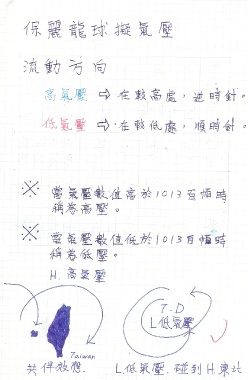 保麗龍球擬氣壓
流動方向
高氣壓 ⇨ 在較高處，逆時針。
低氣壓 ⇨ 在較低處，順時針。
※ 當氣壓數值高於1013百帕時
稱為高壓。
※ 當氣壓數值低於1013百帕時
稱為低壓。
H.高氣壓
T.D
L.低氣壓
Taiwan
共伴效應.
L.低氣壓.碰到H.東北